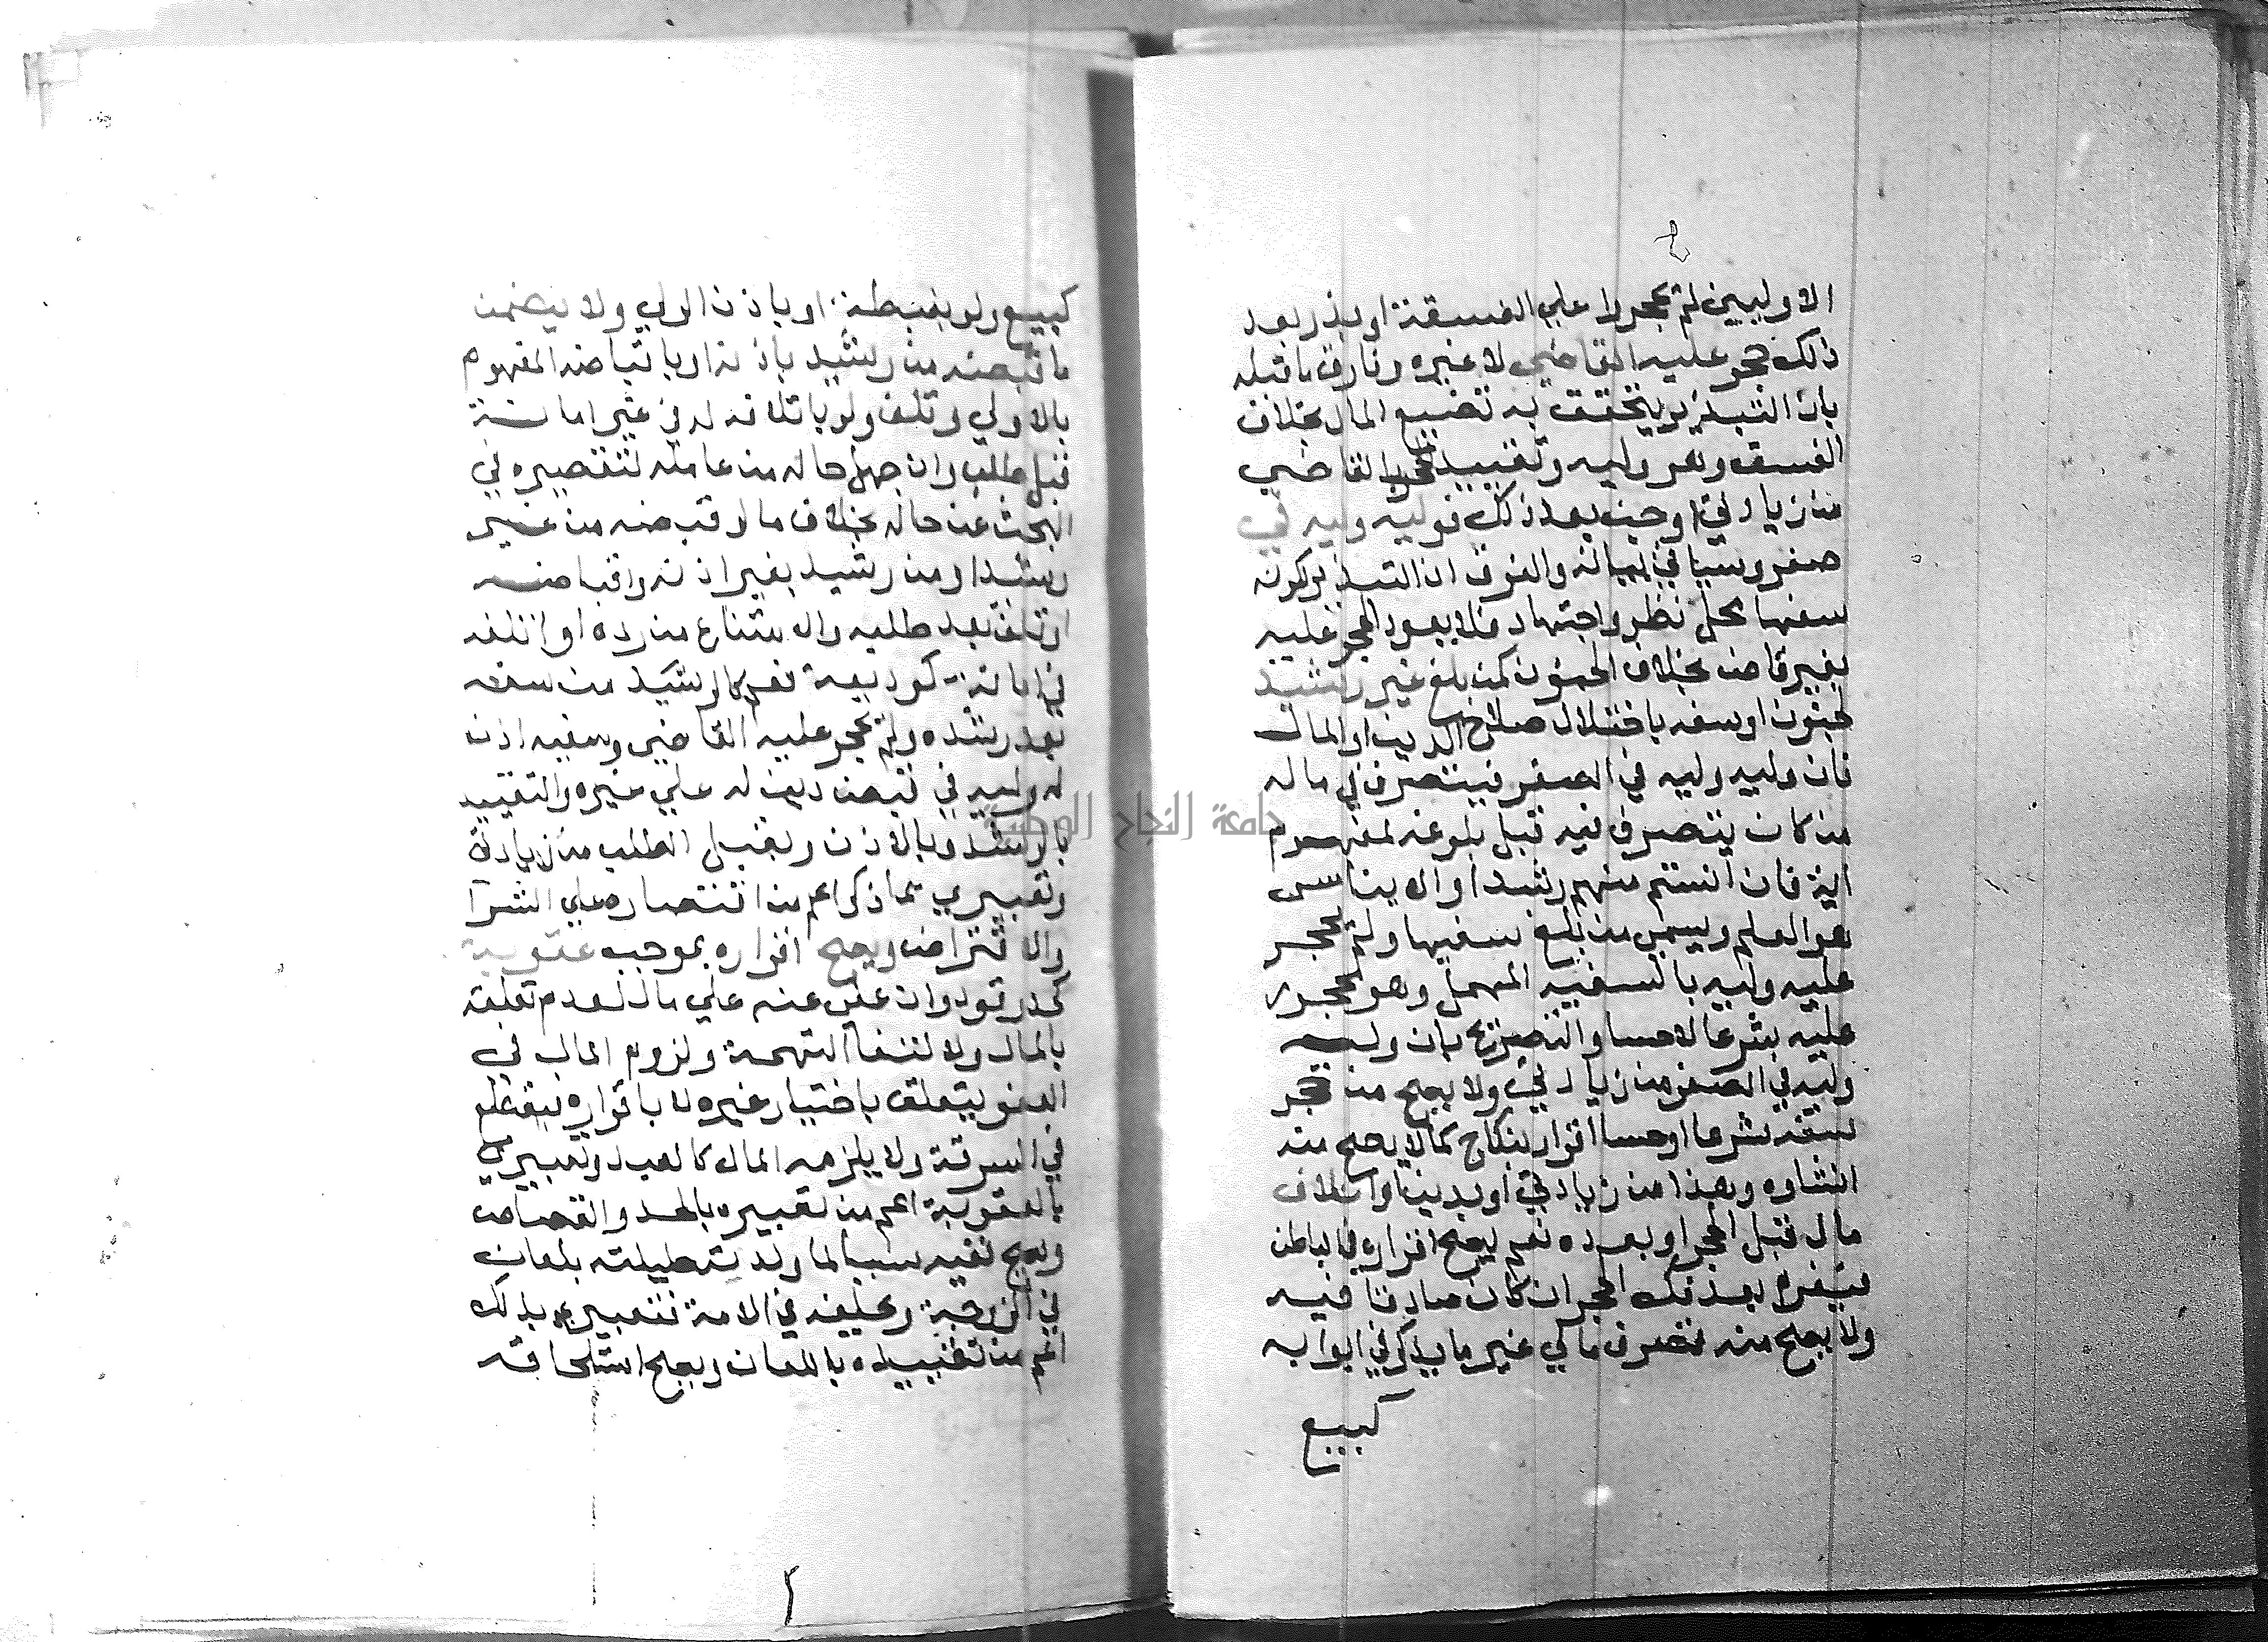 الاوليين لم يحجروا علي الفسقة او بذر بعد
ذلك حجر عليه القاضي لا غيره وفارق ما قبله
بان التبذير يتحقق به تضييع المال بخلاف
الفسق وهو وليه وتقييد الحجر بالقاضي
من زيادتي او جن بعد ذلك فوليه وليه في
صغر وسياتي بيانه والفرق ان التبذير لكونه
سفها محل نظر واجتهاد فلا يعود الحجر عليه
بغير قاض بخلاف الجنون كمن بلغ غير رشيد
لجنون او سفه باختلال صلاح الدين او المال
فان وليه وليه في الصغر فيتصرف في ماله
من كان يتصرف فيه قبل بلوغه لمفهوم
اية فان انستم منهم رشدا والايناس
هو العلم ويسمى من بلغ سفيها ولم يحجر
عليه وليه بالسفيه المهمل وهو محجور
عليه شرعا لا حسا والتصريح بان وليه
وليه في الصغر من زيادتي ولا يصح من محجر
سفه شرعا او حسا اقرار بنكاح كما لا يصح منه
انشاوه وهذا من زيادتي او بدين او اتلاف
مال قبل الحجر او بعده نعم يصح اقراره في الباطن
فيغرم بعد فك الحجر ان كان صادقا فيه
ولا يصح منه تصرف مالي غير ما يذكر في ابوابه
كبيع
كبيع ولو بغبطة او باذن الولي ولا يضمن
ما قبضه من رشيد باذنه او باقباضه المفهوم
بالاولي وتلف ولو باتلافه له في غير امانة
قبل طلب وان جهل حاله من عامله لتقصيره في
البحث عن حاله بخلاف ما لو قبضه من غير
رشيد او من رشيد بغير اذنه واقباضه
او تلف بعد طلبه والامتناع من رده او اتلفه
في امانة كوديعة نعم كالرشيد من سفه
بعد رشده ولم يحجر عليه القاضي وسفيه اذن
له وليه في قبض دين له علي غيره والتقييد
بالرشد وبالاذن وبقبل الطلب من زيادتي
وتعبيري بما ذكر اعم من اقتصاره علي الشرا
والاقتراض ويصح اقراره بموجب عقوبة
كحد وقود وان عفي عنه علي مال لعدم تعلقه
بالمال ولانتفا التهمة ولزوم المال في
العفو يتعلق باختيار غيره لا باقراره فيقطع
في السرقة ولا يلزمه المال كالعبد وتعبيري
بالعقوبة اعم من تعبيره بالحد والقصاص
ويصح نفيه نسبا لما ولدته حليلته بلعان
في الزوجة وبحلفه في الامة فتعبيري بذلك
اعم من تقييده باللعان ويصح استلحاقه